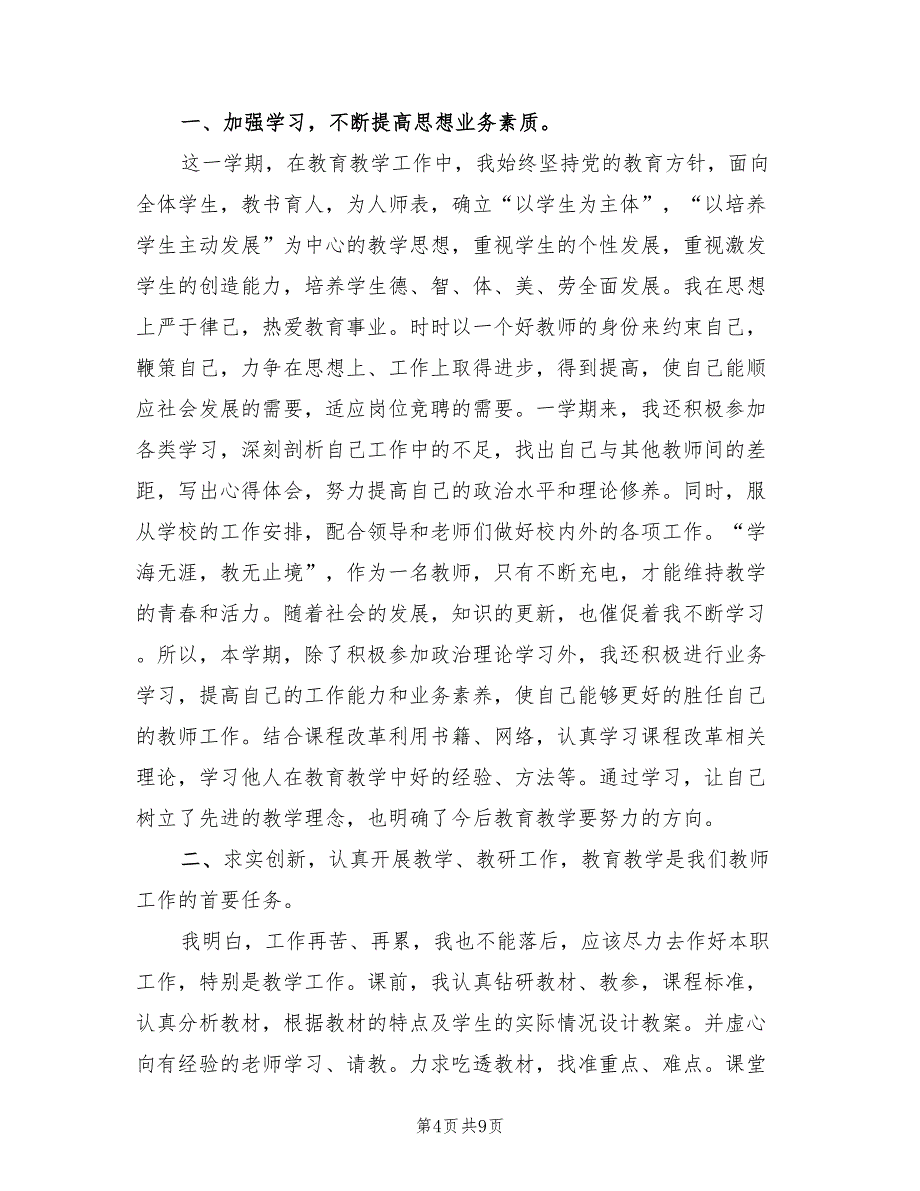 一、加强学习，不断提高思想业务素质。
这一学期，在教育教学工作中，我始终坚持党的教育方针，面向
全体学生，教书育人，为人师表，确立“以学生为主体”，“以培养
学生主动发展”为中心的教学思想，重视学生的个性发展，重视激发
学生的创造能力，培养学生德、智、体、美、劳全面发展。我在思想
上严于律己，热爱教育事业。时时以一个好教师的身份来约束自己，
鞭策自己，力争在思想上、工作上取得进步，得到提高，使自己能顺
应社会发展的需要，适应岗位竞聘的需要。一学期来，我还积极参加
各类学习，深刻剖析自己工作中的不足，找出自己与其他教师间的差
距，写出心得体会，努力提高自己的政治水平和理论修养。同时，服
从学校的工作安排，配合领导和老师们做好校内外的各项工作。“学
海无涯，教无止境”，作为一名教师，只有不断充电，才能维持教学
的青春和活力。随着社会的发展，知识的更新，也催促着我不断学习
。所以，本学期，除了积极参加政治理论学习外，我还积极进行业务
学习，提高自己的工作能力和业务素养，使自己能够更好的胜任自己
的教师工作。结合课程改革利用书籍、网络，认真学习课程改革相关
理论，学习他人在教育教学中好的经验、方法等。通过学习，让自己
树立了先进的教学理念，也明确了今后教育教学要努力的方向。
二、求实创新，认真开展教学、教研工作，教育教学是我们教师
工作的首要任务。
我明白，工作再苦、再累，我也不能落后，应该尽力去作好本职
工作，特别是教学工作。课前，我认真钻研教材、教参，课程标准，
认真分析教材，根据教材的特点及学生的实际情况设计教案。并虚心
向有经验的老师学习、请教。力求吃透教材，找准重点、难点。课堂
第4页共9页